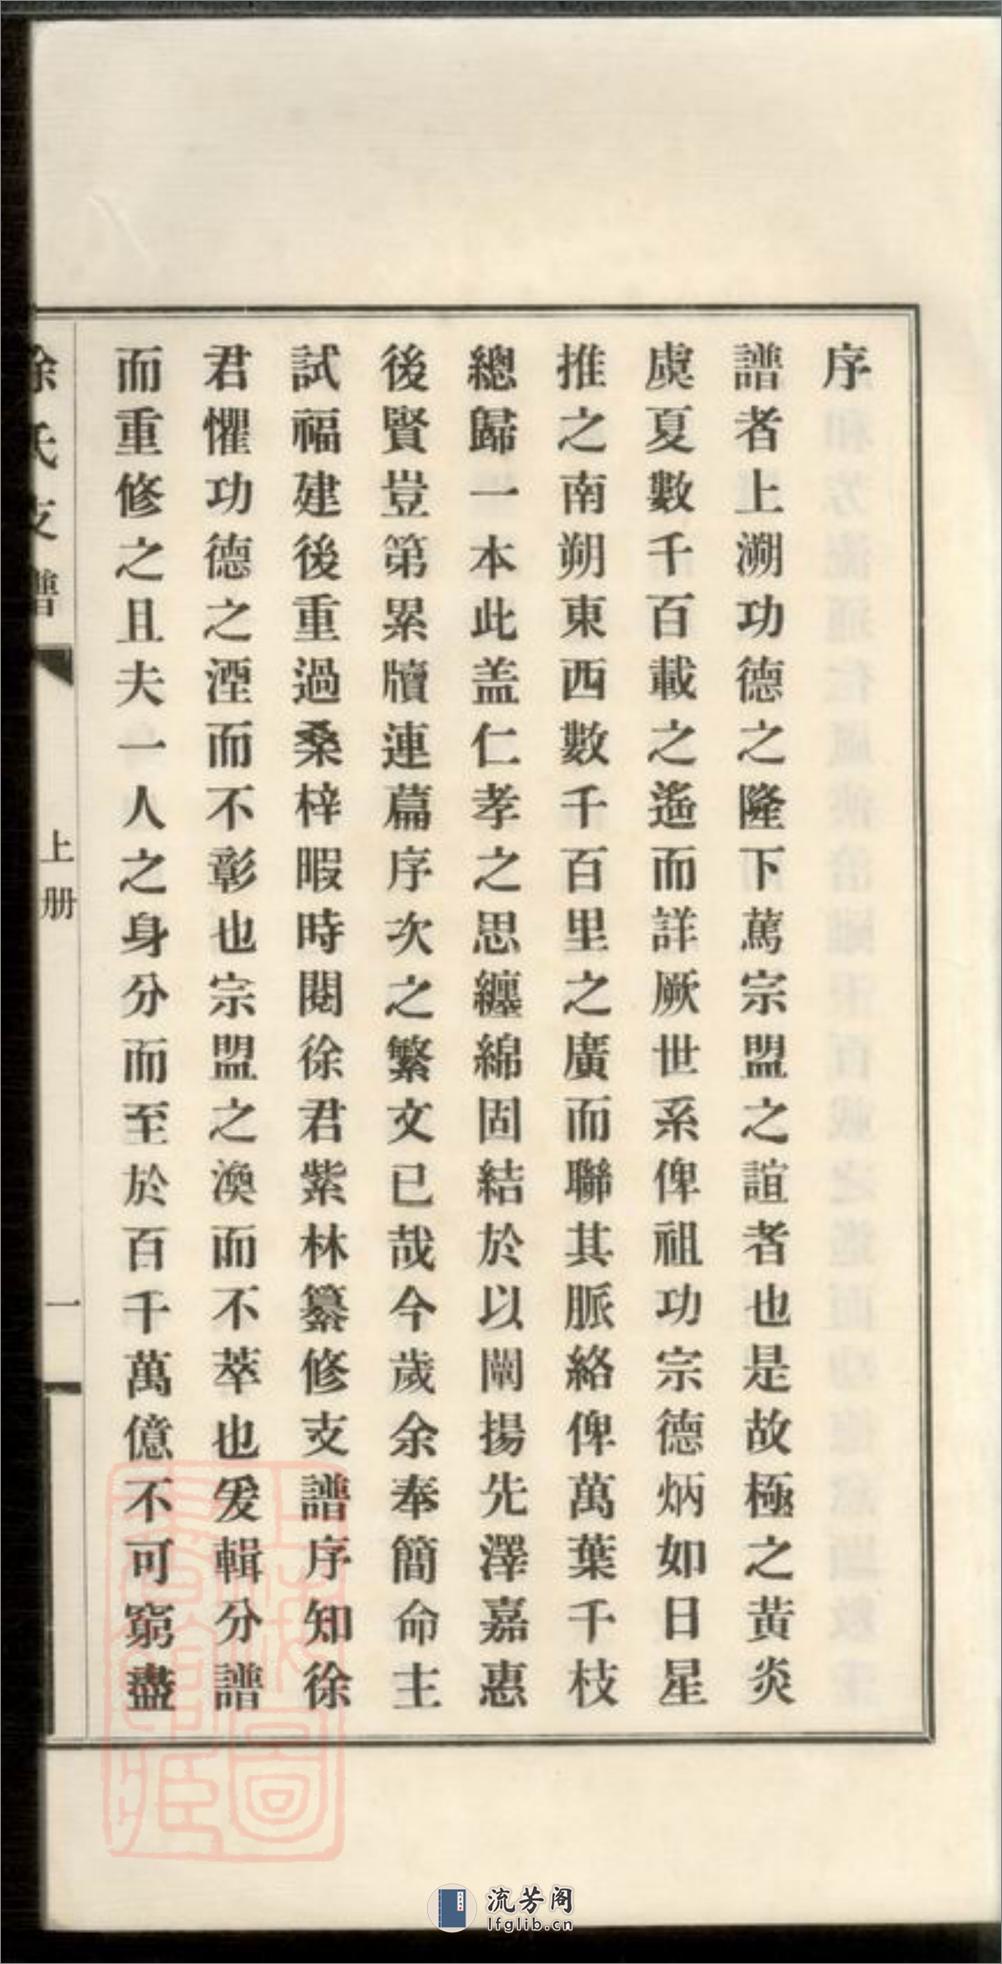 序
譜者上溯功德之隆下篤宗盟之誼者也是故極之黃炎
虞夏數千百載之遙而詳厥世系俾祖功宗德炳如日星
推之南朔東西數千百里之廣而聯其脈絡俾萬葉千枝
總歸一本此盖仁孝之思纏綿固結於以闡揚先澤嘉惠
後賢豈第累牘連篇序次之繁文已哉今歲余奉簡命主
試福建後重過桑梓暇時閱徐君紫林纂修支譜序知徐
君懼功德之湮而不彰也宗盟之渙而不萃也爰輯分譜
而重修之且夫一人之身分而至於百千萬億不可窮盡
徐氏支譜
上册
一
上海圖書館藏
流芳阁
lfglib.cn